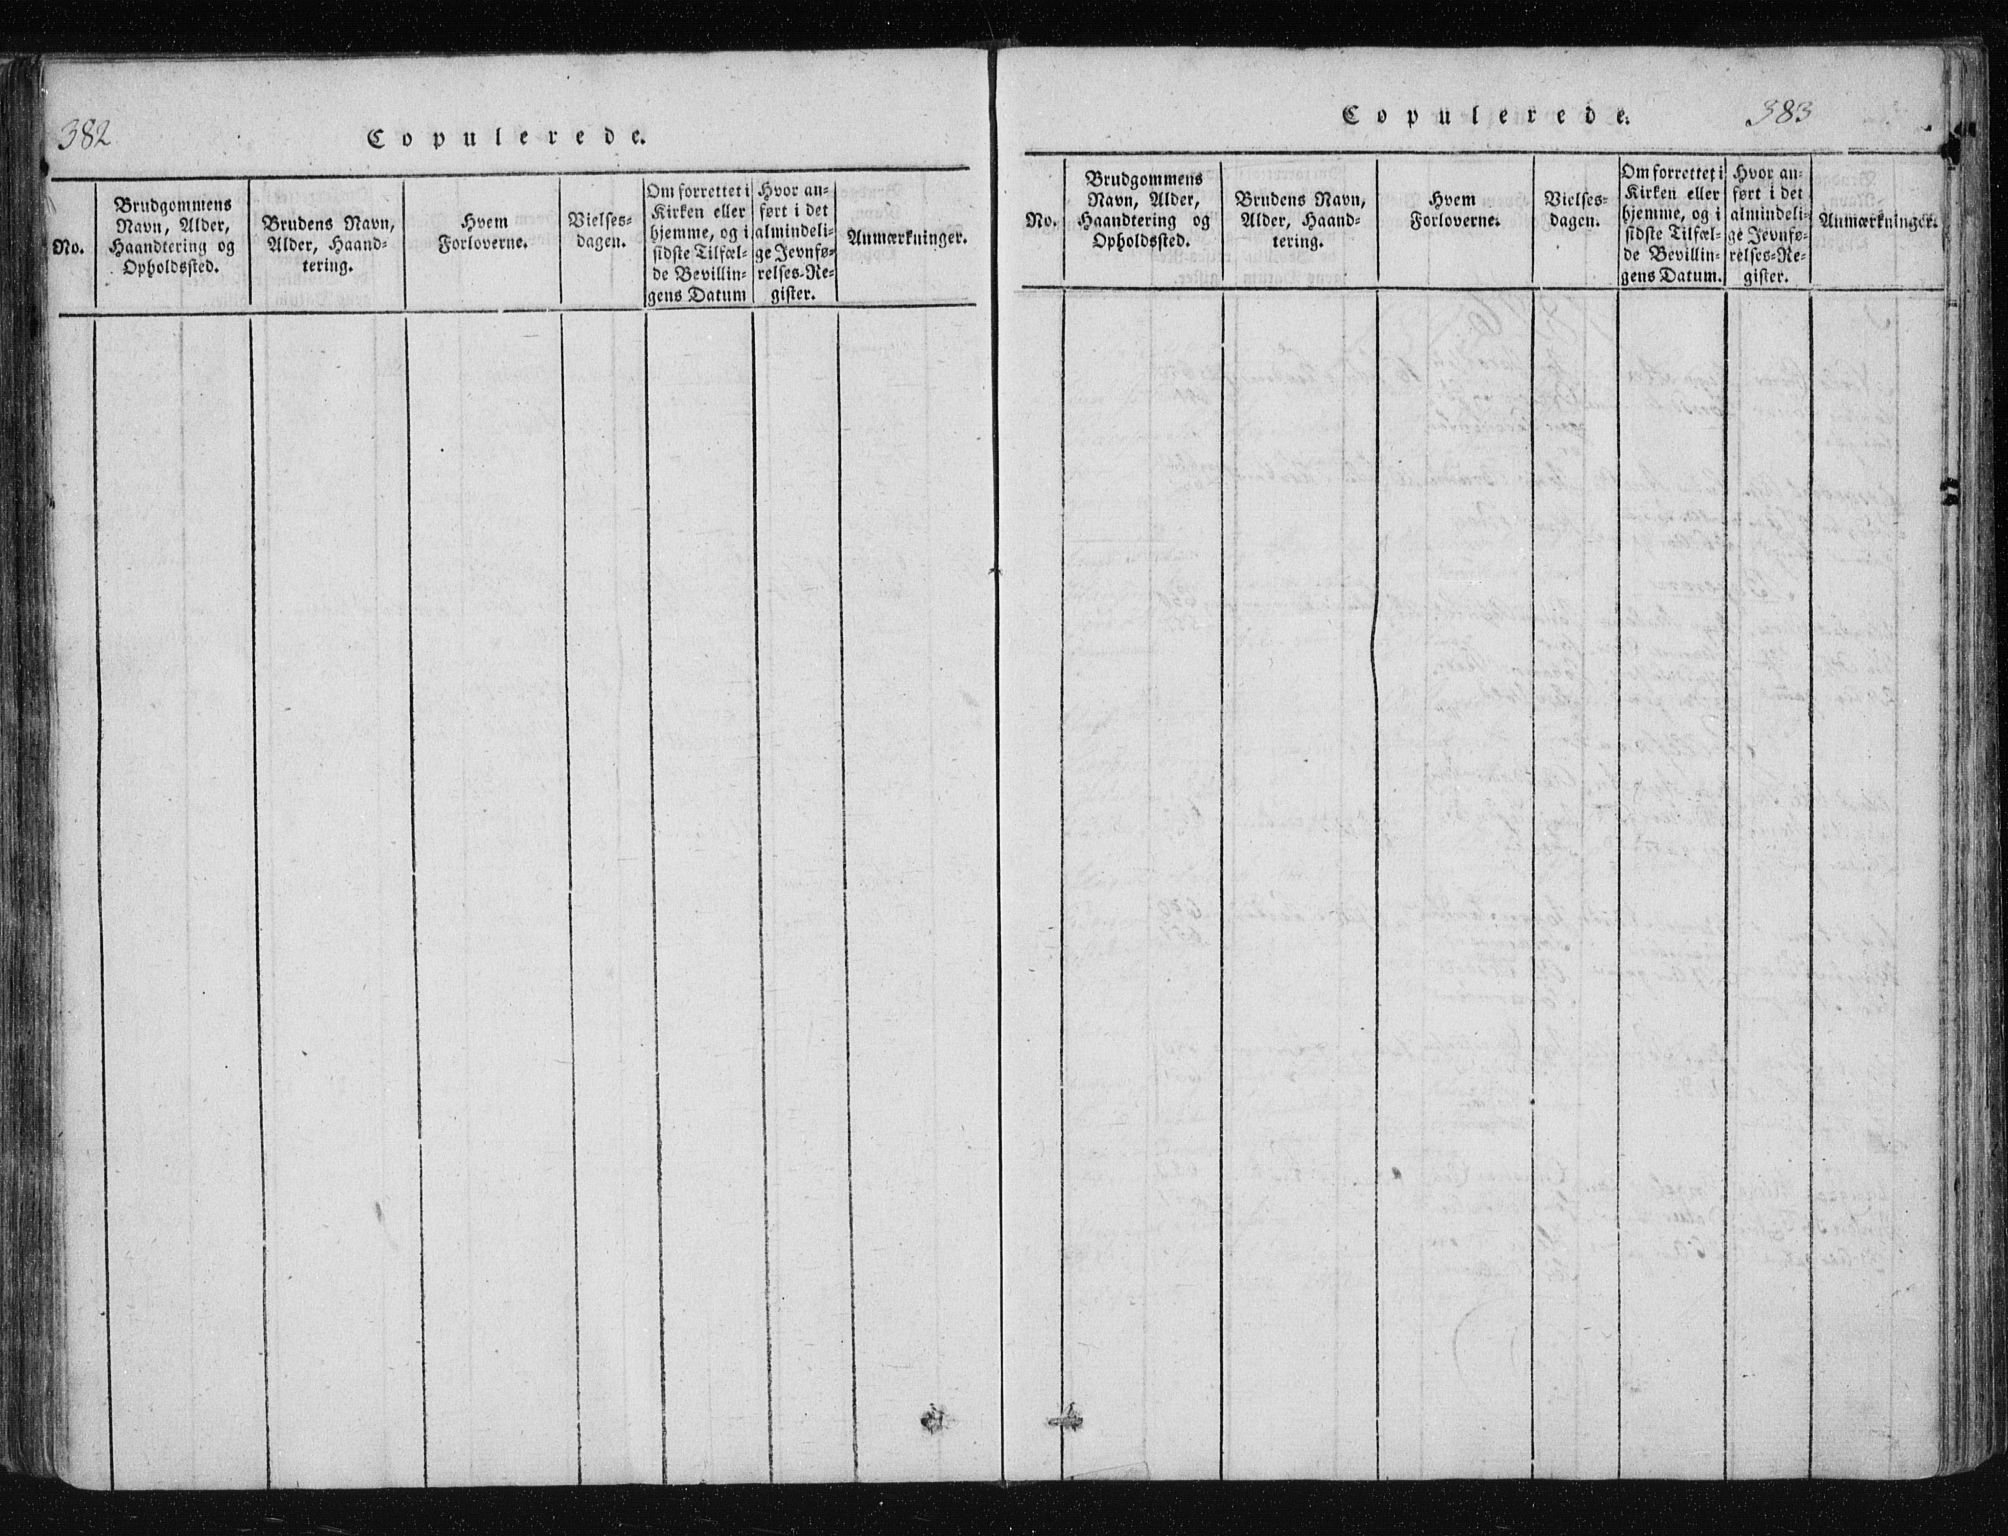 382
Copulerede.
No.
Brudgommens
Navn, Alder,
Haandtering og
Opholdssted.
Brudens Navn,
Alder, Haand-
tering.
Hvem
Forloverne.
Vielses-
dagen.
Om forrettet i
Kirken eller
hjemme, og i
sidste Tilfæl-
de Bevillin-
gens Datum
Hvor an-
ført i det
almindeli-
ge Jevnfø-
relses-Re-
gister.
Anmærkninger.
Copulerede.
383
No.
Brudgommens
Navn, Alder,
Haandtering og
Opholdssted.
Brudens Navn,
Alder, Haand-
tering.
Hvem
Forloverne.
Vielses-
dagen.
Om forrettet i
Kirken eller
hjemme, og i
sidste Tilfæl-
de Bevillin-
gens Datum.
Hvor an-
ført i det
almindeli-
ge Jevnfø-
relses-Re-
gister.
Anmærkninger.